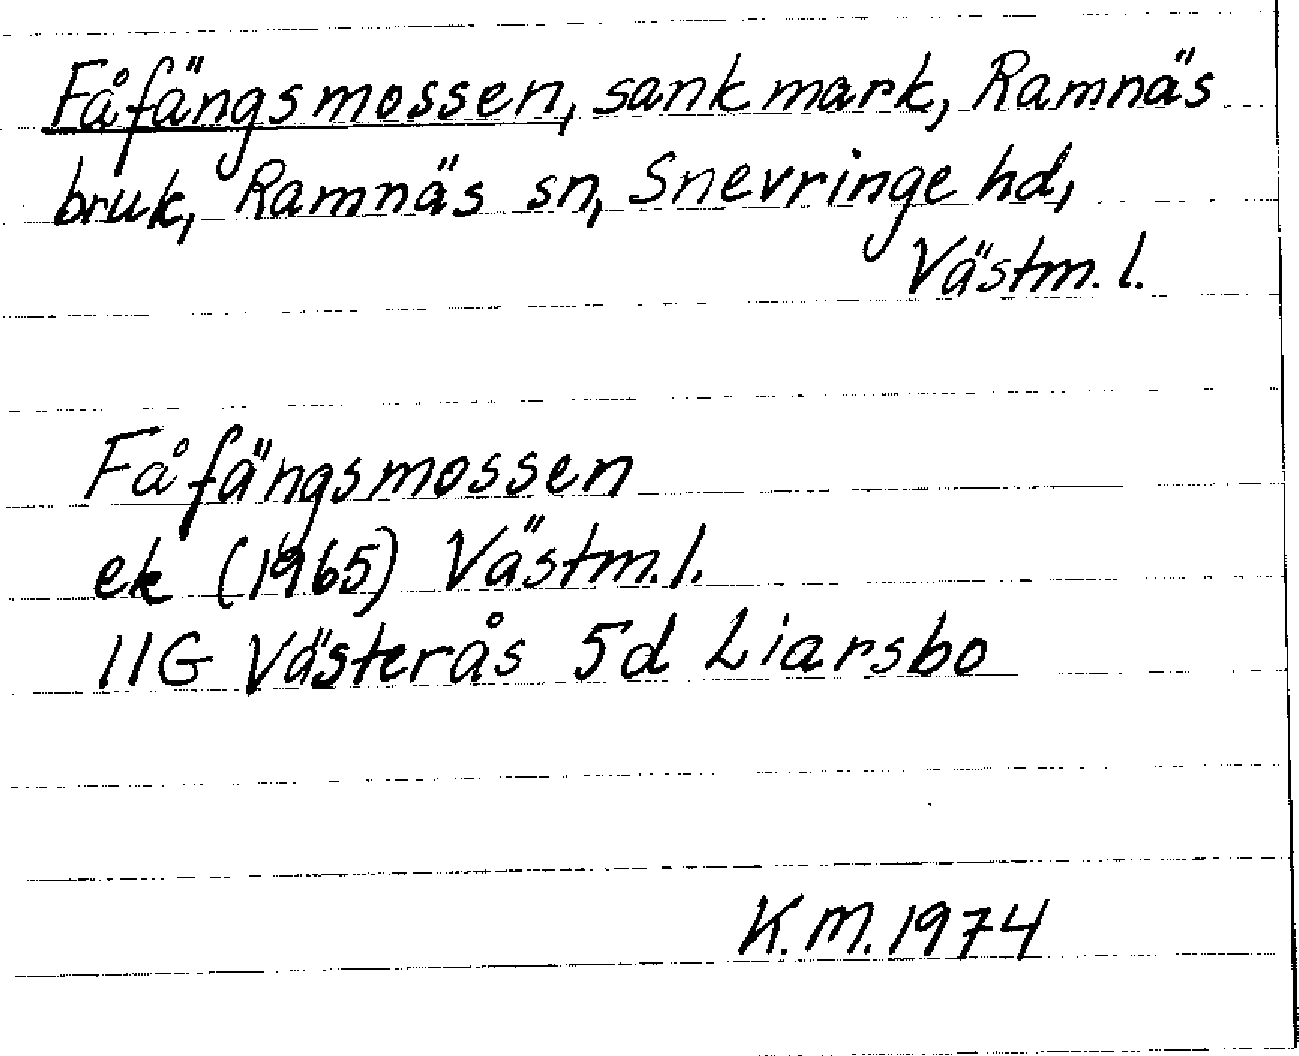 Fåfängsmossen, sank mark, Ramnäs
bruk, Ramnäs sn, Snevringe hd,
Västm. l.
Fåfängsmossen
ek (1965) Västm. l.
11G Västerås 5d Liarsbo
K. M. 1974